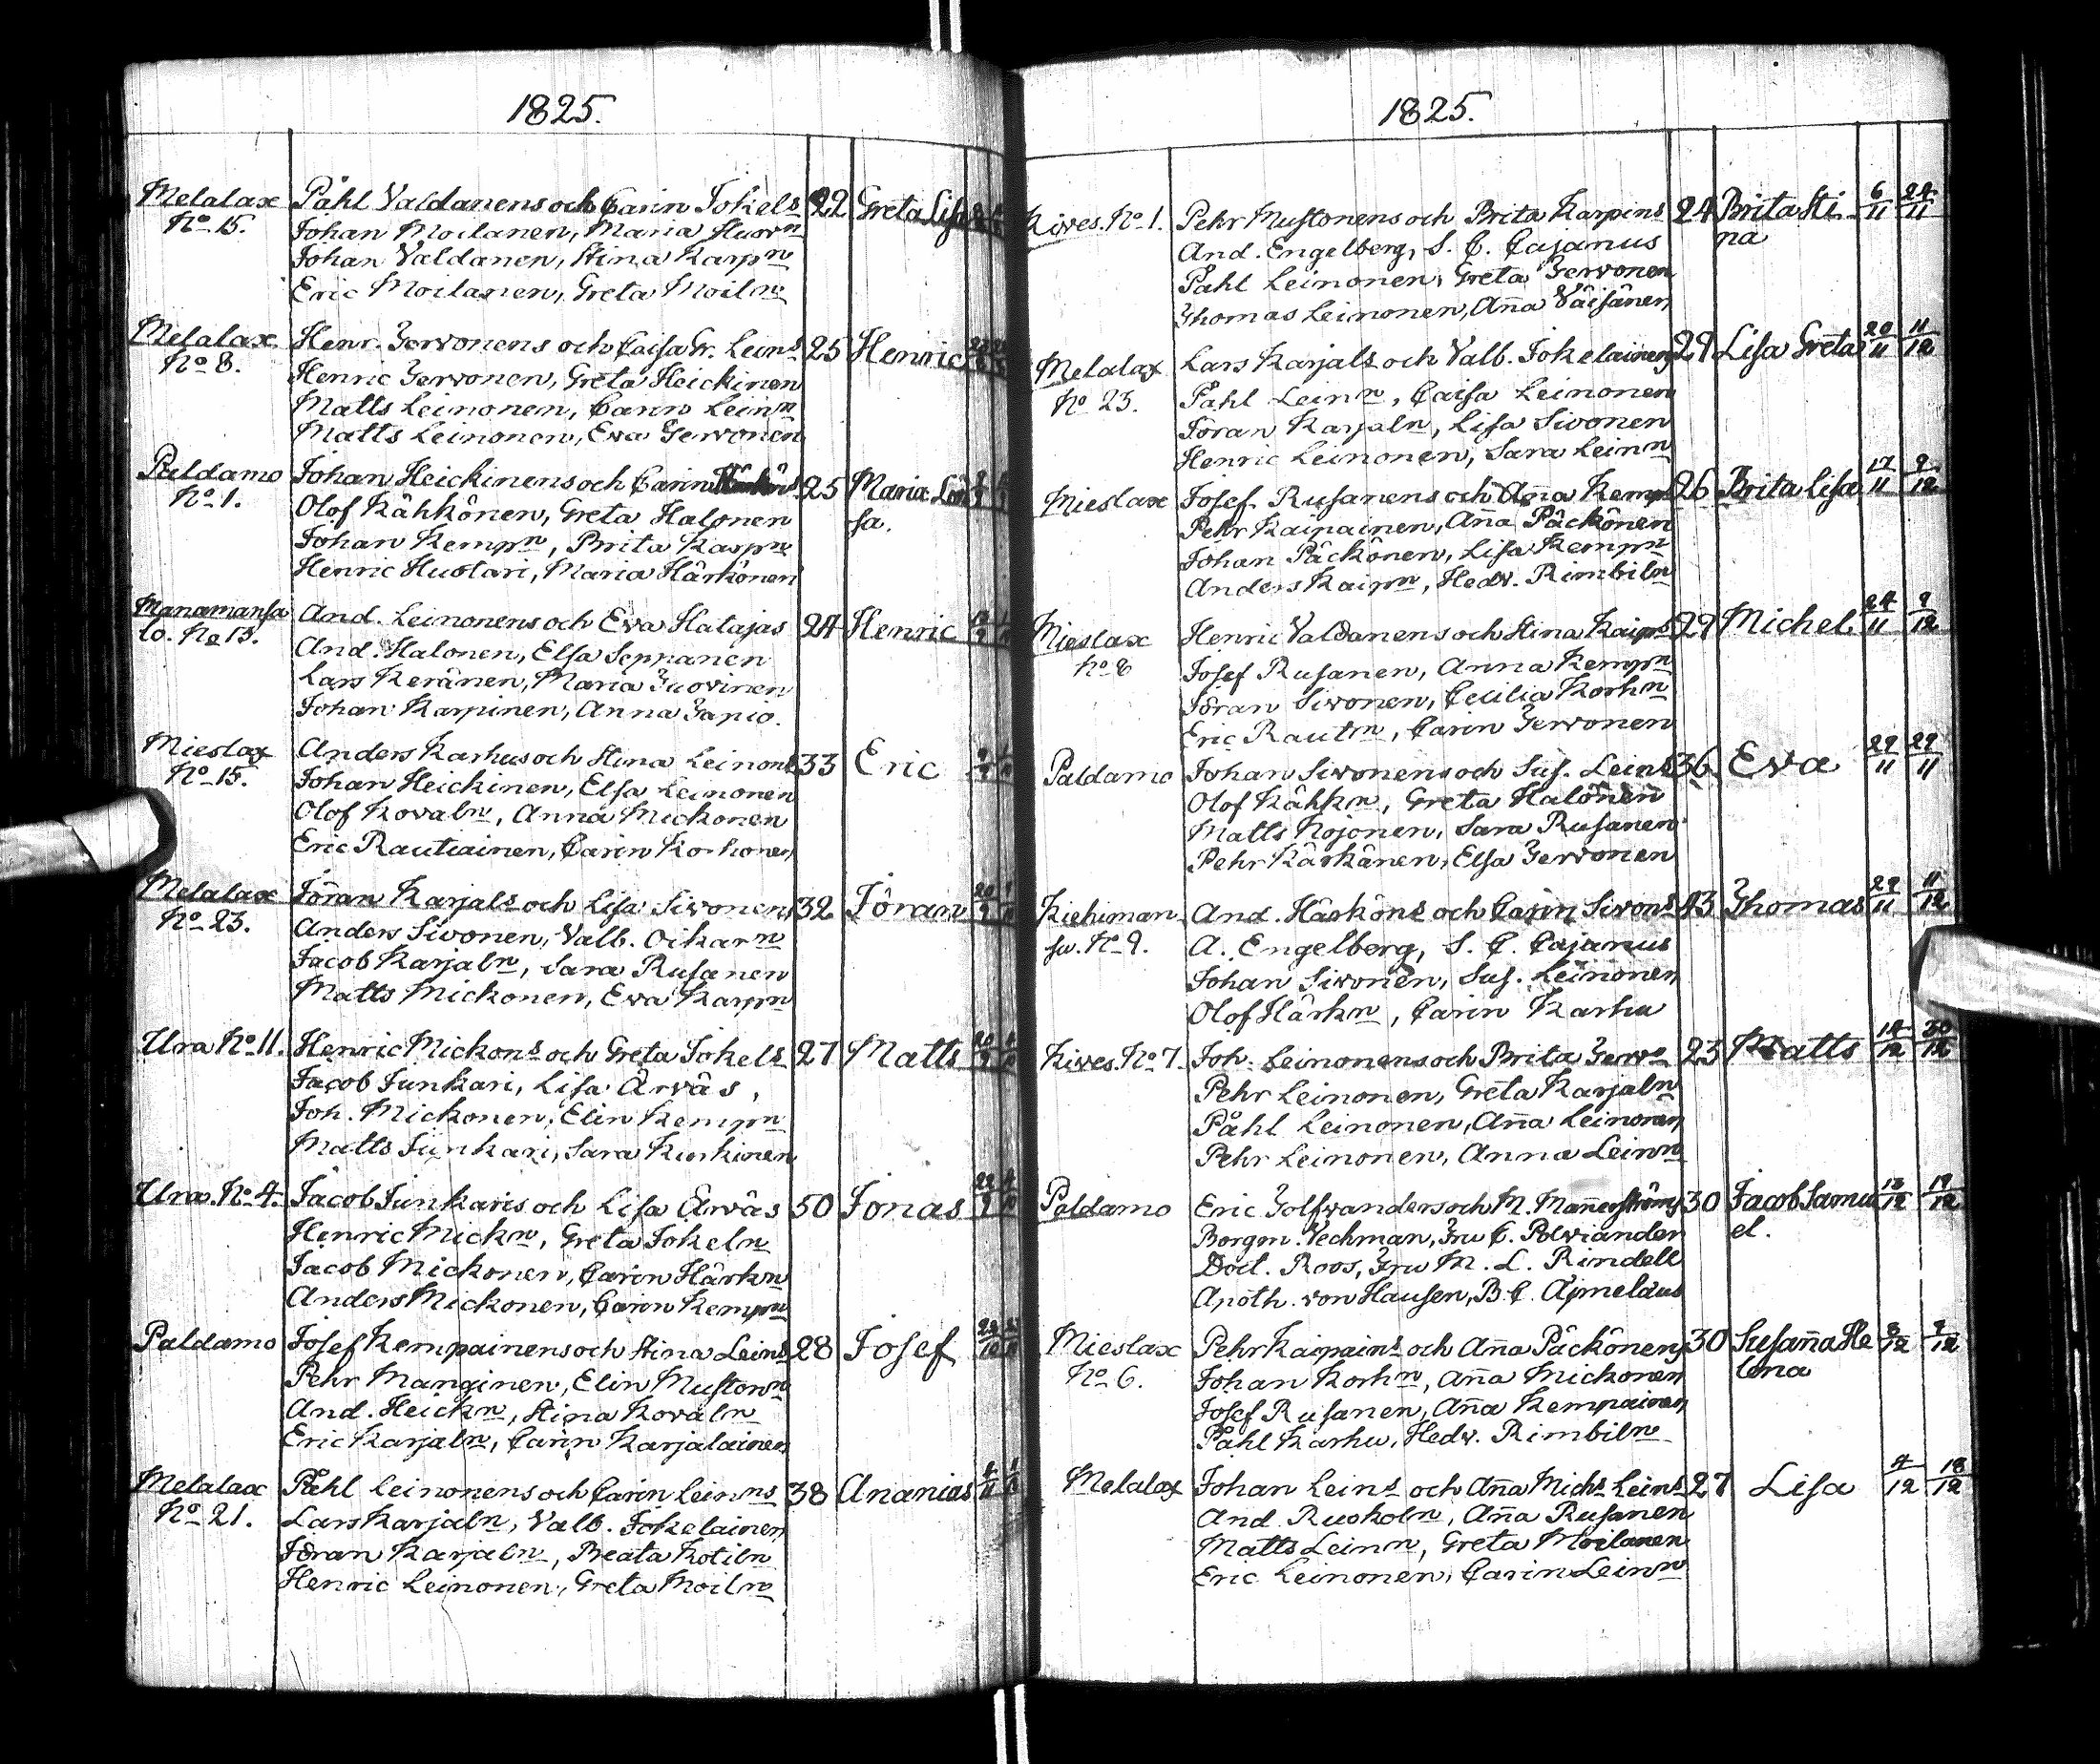 1825.
Melalax Påhl Valdanens och Carin Jokels 22 Greta Lisa
No 15. Johan Moilanen, Maria Huovn
Johan Valdanen, Stina Karpn
Eric Moilanen, Greta Moiln
Melalax Henr. Jervonens och Caisa Gr. Leins 25 Henric
No 8. Henric Jervonen, Greta Heickinen
Matts Leinonen, Carin Leinn
Matts Leinonen, Eva Jervonen
Paldamo Johan Heickinens och Carin 25 Maria Lovi
No 1. Olof Kähkönen, Greta Halonen sa.
Johan Kempn, Brita Karpn
Henric Huotari, Maria Härkönen
Manamansa And. Leinonens och Eva Hatajas 24 Henric
lo. No 13. And. Halonen, Elsa Seppänen
Lars Keränen, Maria Juovinen
Johan Karpinen, Anna Tapio.
Mieslax Anders Karhus och Stina Leinons 33 Eric
No 15. Johan Heickinen, Elsa Leinonen
Olof Kovaln, Anna Mickonen
Eric Rautiainen, Carin Korhonen
Melalax Jöran Karjals och Lisa Sivonens 32 Jöran
No 23. Anders Sivonen, Valb. Oikarn
Jacob Karjaln, Sara Rusanen
Matts Mickonen, Eva Karpn
Ura No 11. Henric Mickons och Greta Jokels 27 Matts
Jacob Junkari, Lisa Ärväs,
Joh. Mickonen, Elin Kempn
Matts Junkari, Sara Kurkinen
Ura. No 4. Jacob Junkaris och Lisa Ärväs 50 Jonas
Henric Mickn, Greta Jokeln
Jacob Mickonen, Carin Härkn
Anders Mickonen, Carin Kempn
Paldamo Josef Kempainens och Stina Leins 28 Josef
Pehr Manginen, Elin Mustonn
And. Heickn, Stina Kovaln
Eric Karjaln, Carin Karjalainen
Melalax Påhl Leinonens och Carin Leinns 38 Ananias
No 21. Lars Karjaln, Valb. Jokelainen
Jöran Karjaln, Beata Kotiln
Henric Leinonen, Greta Moiln
1825.
Kives. No 1. Pehr Mustonens och Brita Karpins 24 Brita Sti 6/11 24/11
And. Engelberg, S. C. Cajanus na
Påhl Leinonen, Greta Jervonen
Thomas Leinonen, Aña Väisänen
Melalax Lars Karjals och Valb. Jokelainens 29 Lisa Greta 20/11 11/12
No 23. Påhl Leinn, Caisa Leinonen
Jöran Karjaln, Lisa Sivonen
Henric Leinonen, Sara Leinn
Mieslax Josef Rusanens och Aña Kemps 26 Brita Lisa 17/11 9/12
Pehr Kaipainen, Aña Päckönen
Johan Päckönen, Lisa Kempn
Anders Kaipn, Hedv. Rimbiln
Mieslax Henric Valdanens och Stina Kaips 29 Michel 24/11 9/12
No 8 Josef Rusanen, Anna Kempn
Jöran Sivonen, Cecilia Korhn
Eric Rautn, Carin Jervonen
Paldamo Johan Sivonens och Sus. Leins 36 Eva 29/11 29/11
Olof Kähkn, Greta Halonen
Matts Mojonen, Sara Rusanen
Pehr Kärkänen, Elsa Jervonen
Kiehiman And. Härköns och Carin Sivons 43 Thomas 29/11 11/12
su. No 9. A. Engelberg, S. C. Cajanus
Johan Sivonen, Sus. Leinonen
Olof Härkn, Carin Karhu
Kives. No 7. Joh. Leinonens och Brita Jervn 23 Matts 14/12 30/12
Pehr Leinonen, Greta Karjaln
Påhl Leinonen, Aña Leinonen
Pehr Leinonen, Anna Leinn
Paldamo Eric Tolfvanders och M. Mañerströms 30 Jacob Samu 13/12 19/12
Borgm. Vechman, Fru C. Polviander el.
Doct. Roos, Fru M. L. Rindell
Apoth. von Hausen, B. C. Ajmelæus
Mieslax Pehr Kaipains och Aña Päckönens 30 Susaña He 8/12 9/12
No 6. Johan Korhn, Aña Mickonen lena
Josef Rusanen, Aña Kempainen
Påhl Karhu, Hedv. Rimbiln
Melalax Johan Leins och Aña Michs Leins 27 Lisa 4/12 18/12
And. Ruokoln, Aña Rusanen
Matts Leinn, Greta Moilanen
Eric Leinonen, Carin Leinn